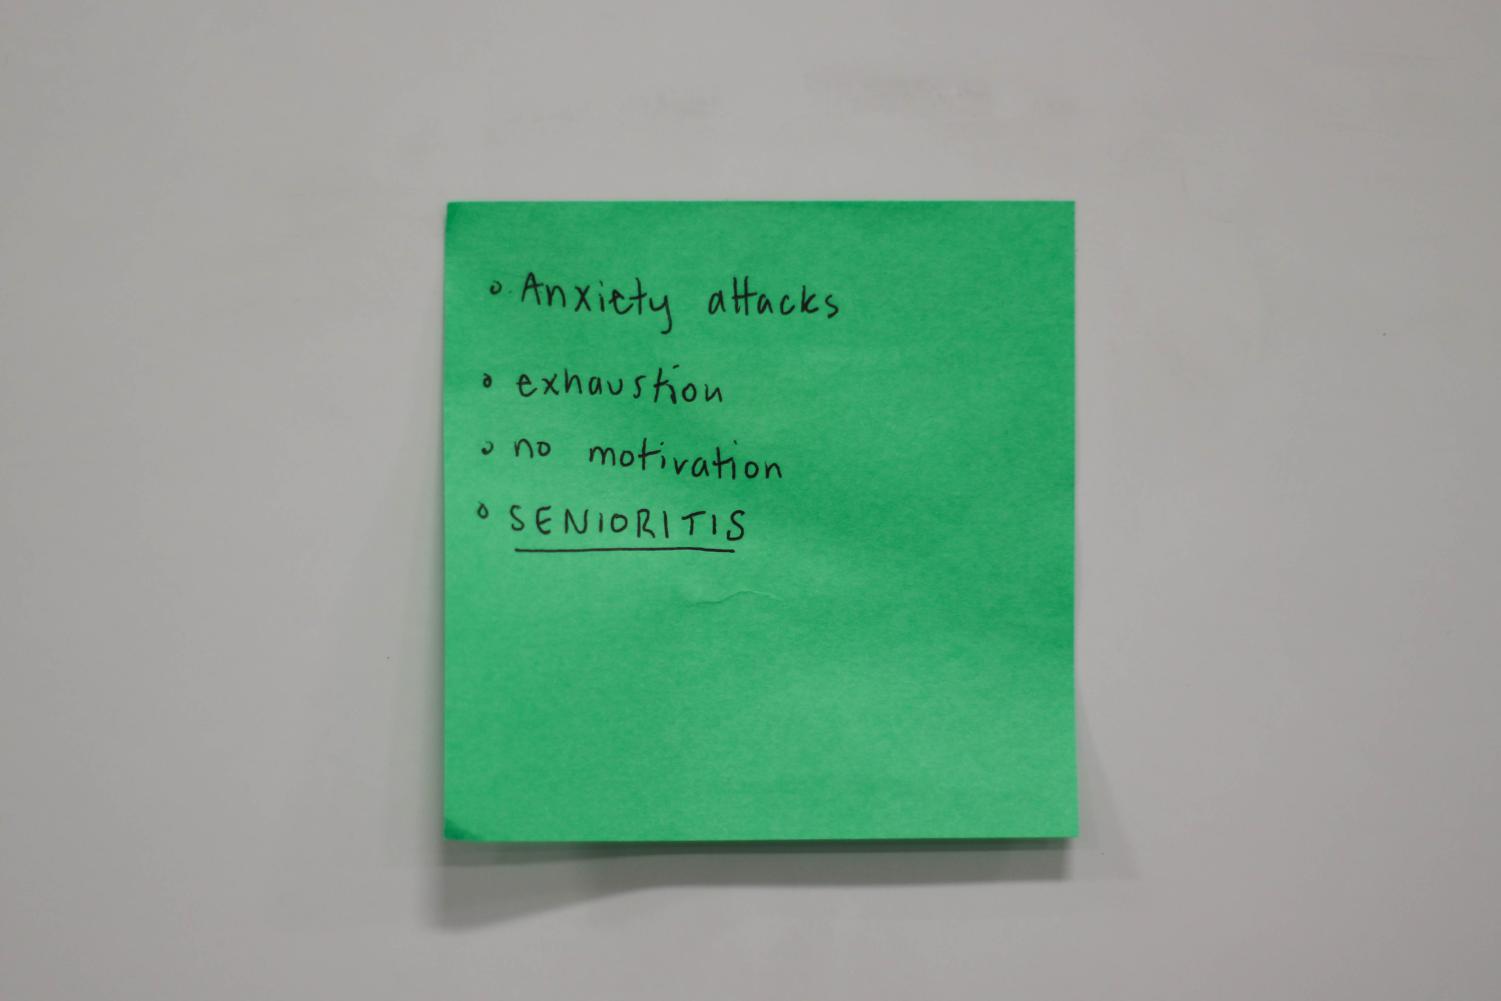 ◦ Anxiety attacks
◦ exhaustion
◦ no motivation
◦ SENIORITIS